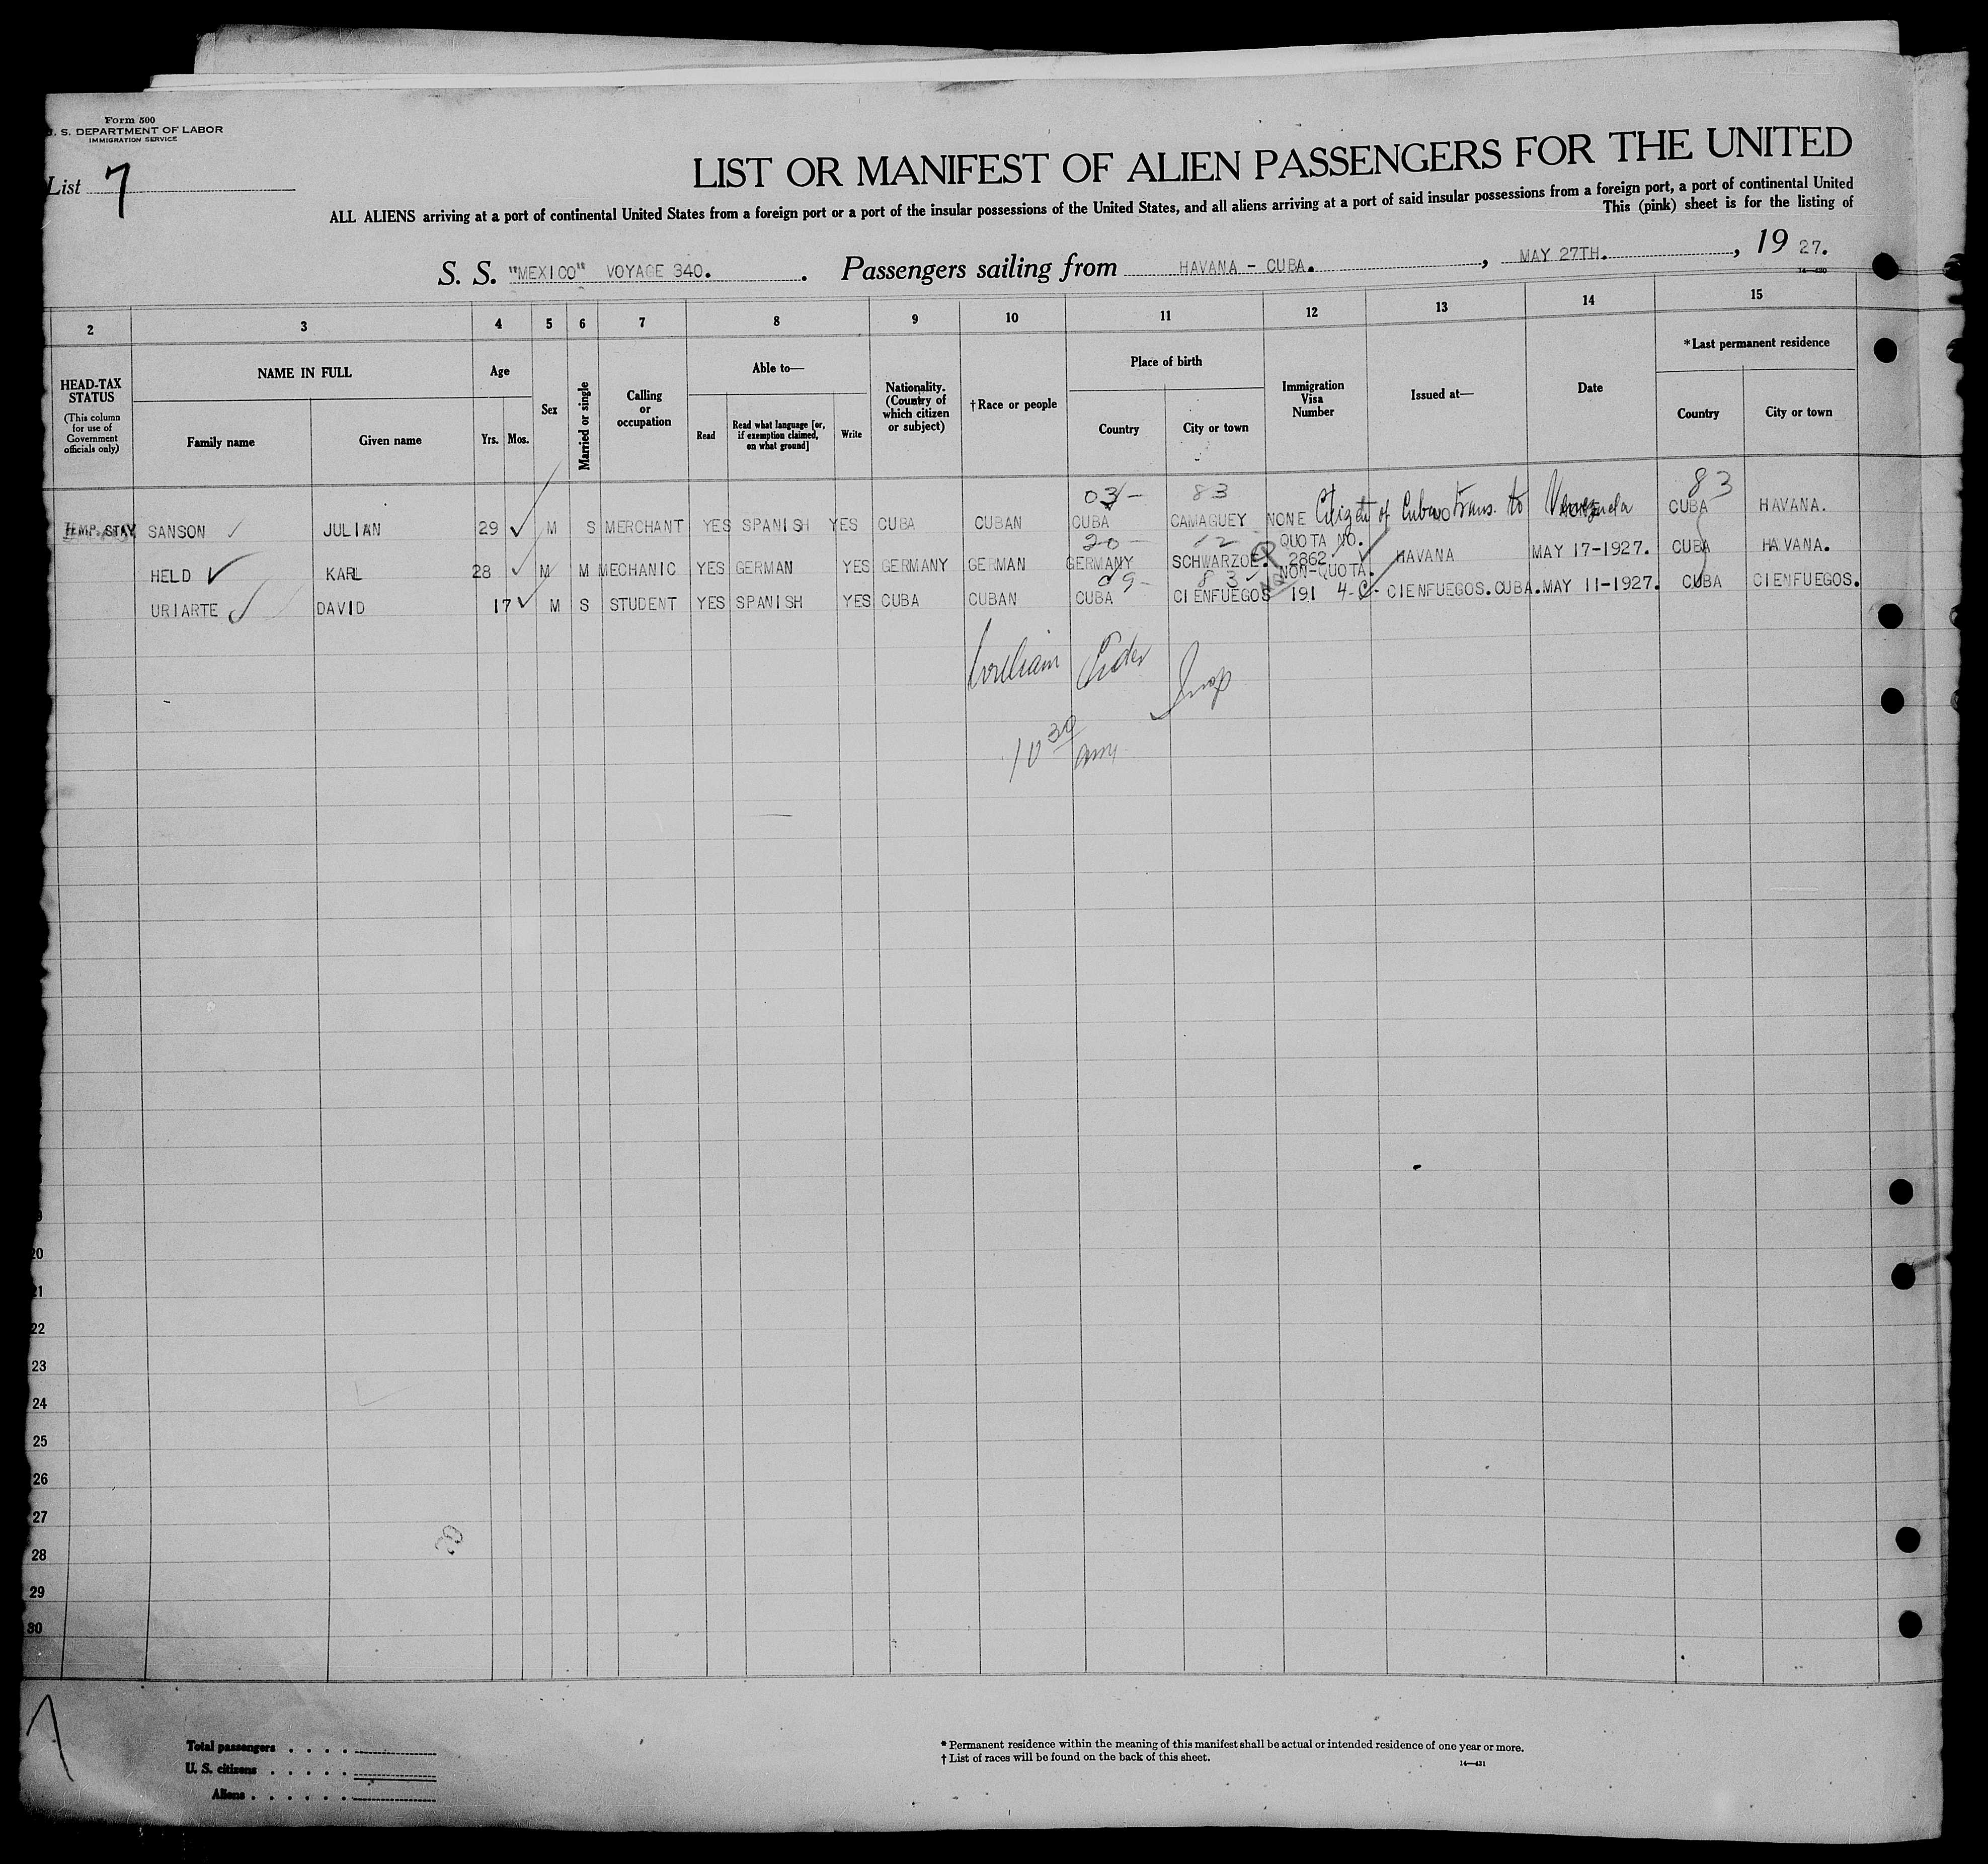 Form 500
U. S. DEPARTMENT OF LABOR
IMMIGRATION SERVICE
List 7
LIST OR MANIFEST OF ALIEN PASSENGERS FOR THE UNITED
ALL ALIENS arriving at a port of continental United States from a foreign port or a port of the insular possessions of the United States, and all aliens arriving at a port of said insular possessions from a foreign port, a port of continental United
This (pink) sheet is for the listing of
S. S. "MEXICO" VOYAGE 340. Passengers sailing from HAVANA - CUBA. , MAY 27TH. , 19 27.
14—430
2 3 4 5 6 7 8 9 10 11 12 13 14 15
HEAD-TAX STATUS (This column for use of Government officials only)
NAME IN FULL
Family name Given name
Age
Yrs. Mos.
Sex
Married or single
Calling or occupation
Able to—
Read Read what language [or, if exemption claimed, on what ground] Write
Nationality. (Country of which citizen or subject)
†Race or people
Place of birth
Country City or town
Immigration Visa Number
Issued at—
Date
*Last permanent residence
Country City or town
03- 83 83
TEMP. STAY SANSON JULIAN 29 M S MERCHANT YES SPANISH YES CUBA CUBAN CUBA CAMAGUEY NONE Citizen of Cuba trans. to Venezuela CUBA HAVANA.
20- 12 QUOTA NO.
HELD KARL 28 M M MECHANIC YES GERMAN YES GERMANY GERMAN GERMANY SCHWARZOE. 2862 HAVANA MAY 17-1927. CUBA HAVANA.
09- 83 NQ NON-QUOTA.
URIARTE DAVID 17 M S STUDENT YES SPANISH YES CUBA CUBAN CUBA CIENFUEGOS 191 4-C- CIENFUEGOS.CUBA. MAY 11-1927. CUBA CIENFUEGOS.
William Insp
10 30 am
9
20
21
22
23
24
25
26
27
28
29
30
Total passengers
U. S. citizens
Aliens
* Permanent residence within the meaning of this manifest shall be actual or intended residence of one year or more.
† List of races will be found on the back of this sheet.
14—431